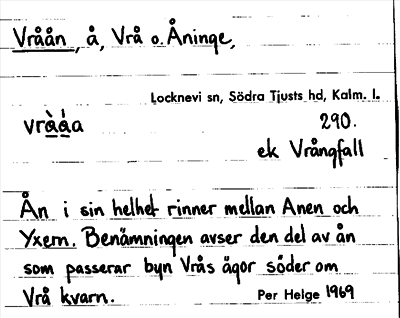 Vråån, å, Vrå o. Åninge,
Locknevi sn, Södra Tjusts hd, Kalm. l.
vrå̀ǻa 290.
ek Vrångfall
Ån i sin helhet rinner mellan Anen och
Yxern. Benämningen avser den del av ån
som passerar byn Vrås ägor söder om
Vrå kvarn. Per Helge 1969